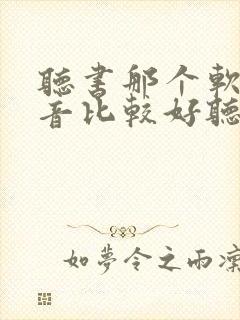 聽書那个軟
音比較好聽
如夢令之雨凜